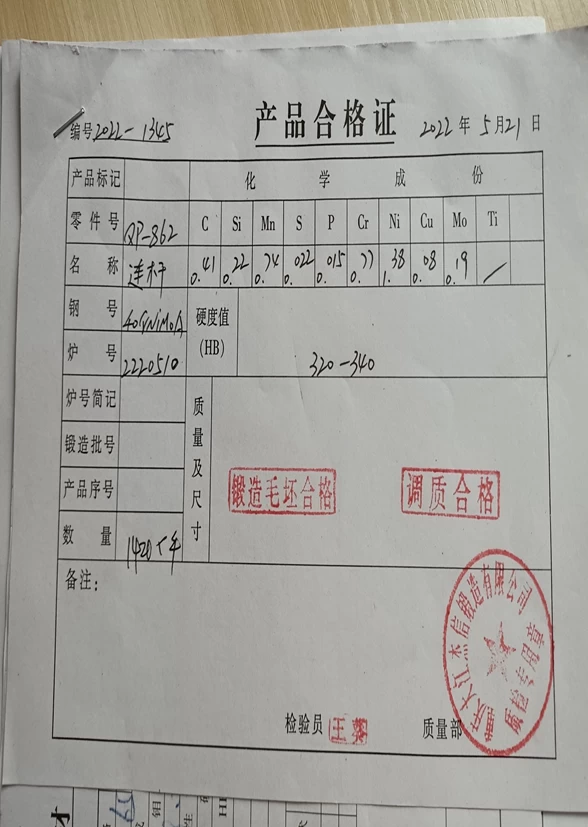 编号2022-1345
产品合格证
2022年5月21日
产品标记
化学成份
零件号 QP-862 C Si Mn S P Cr Ni Cu Mo Ti
名称 连杆 0.41 0.22 0.74 0.022 0.015 0.77 1.38 0.08 0.19 /
钢号 40CrNiMoA 硬度值
(HB)
320-340
炉号 2220510
炉号简记
质量及尺寸
锻造批号
产品序号
锻造毛坯合格
调质合格
数量 1420件
备注：
重庆大江杰信锻造有限公司
检验员 王
质量部